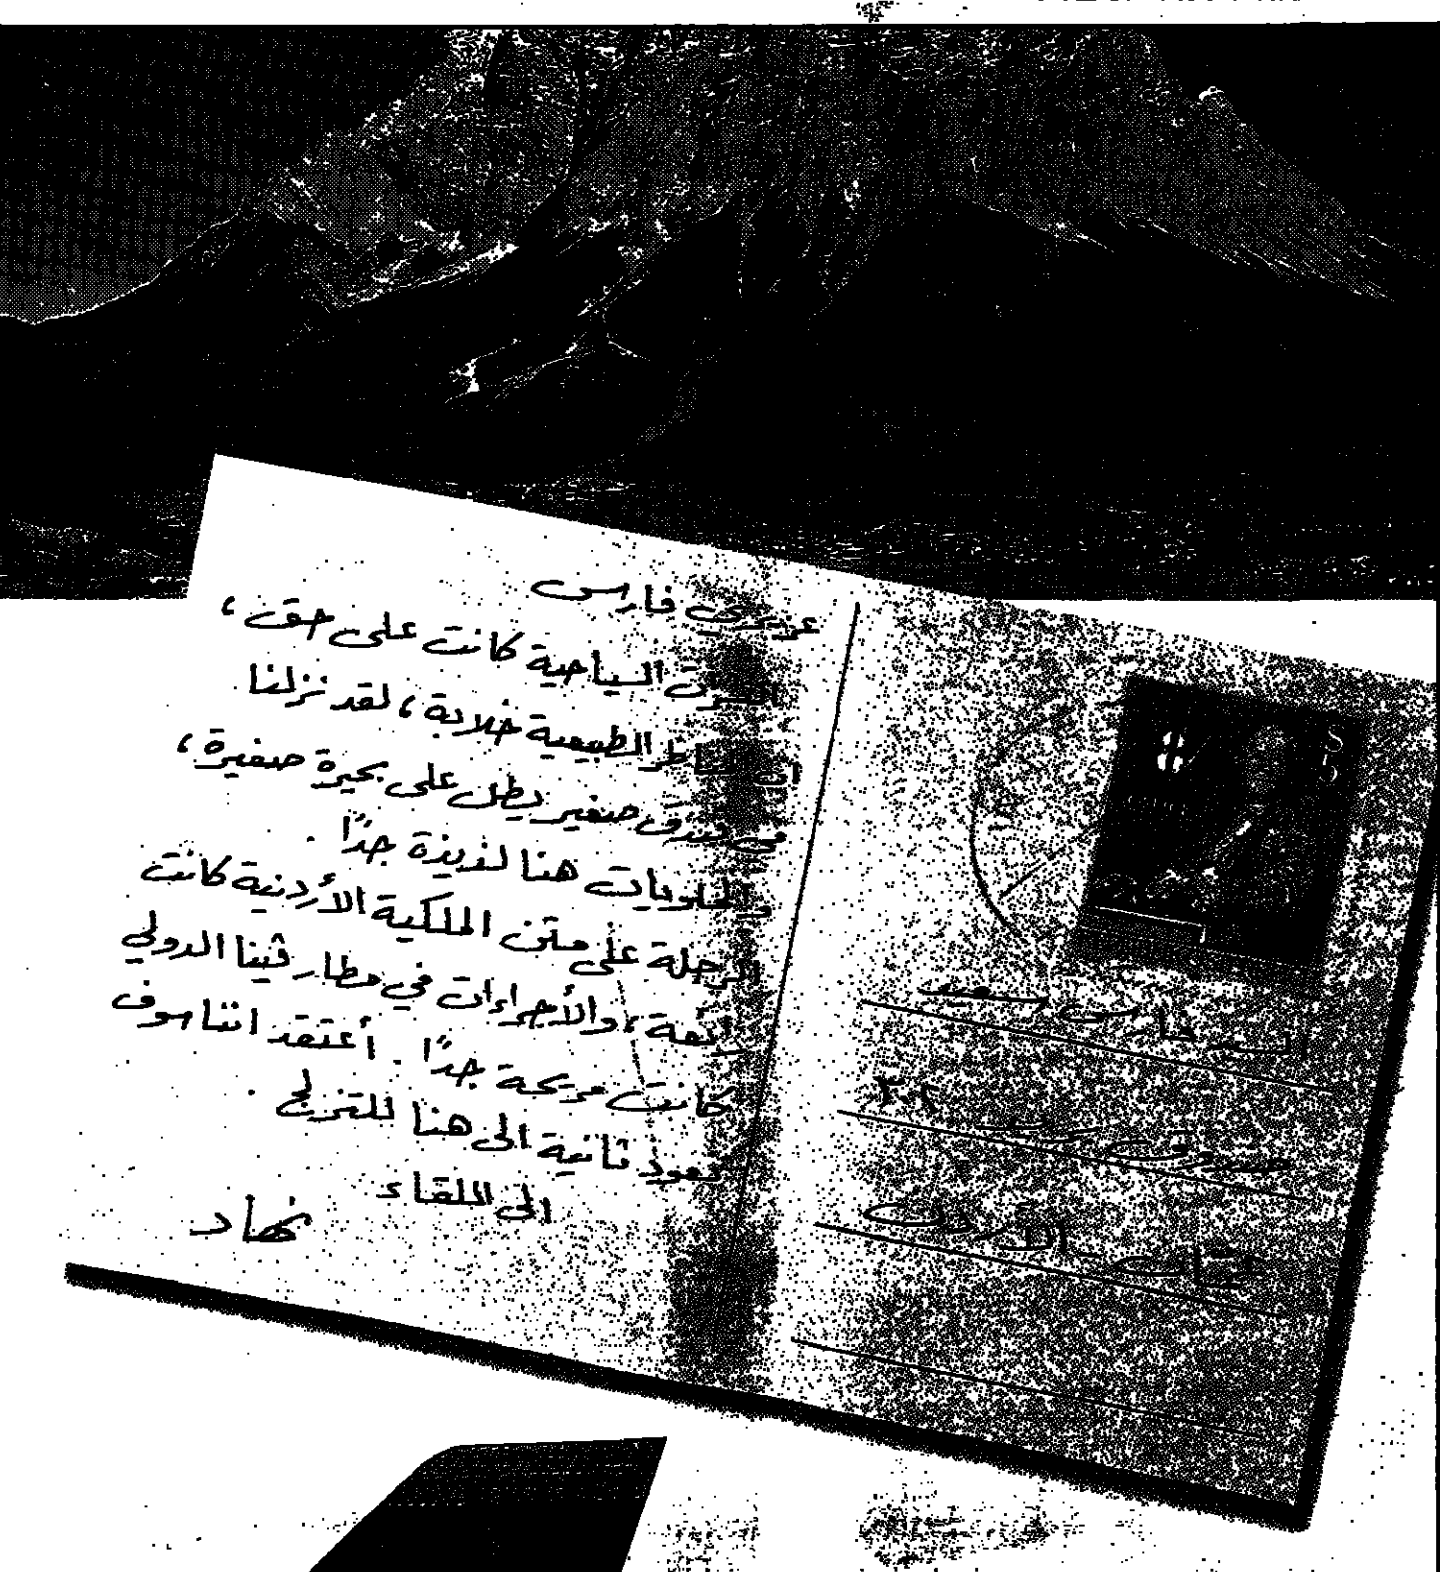 عزيزي فارس
السياحية كانت على حق ،
المناظر الطبيعية خلابة ، لقد نزلنا
في فندق صغير يطل على بحيرة صغيرة ،
والحلويات هنا لذيذة جدًا .
الرحلة على متن الملكية الأردنية كانت
رائعة ، والأجراءات في مطار ڤينا الدولي
كانت مريحة جدًا . أعتقد اننا سوف
نعود ثانية الى هنا للتزلج .
الى اللقاء
نهاد
السيد فارس
صندوق بريد
عمان - الاردن